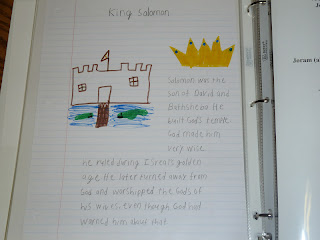 King Solomon
Solomon was the
son of David and
Bathsheba. He
built God's temple.
God made him
very wise.
He ruled during Israel's golden
age. He later turned away from
God and worshipped the Gods of
his wives, even though God had
warned him about that.
Joram